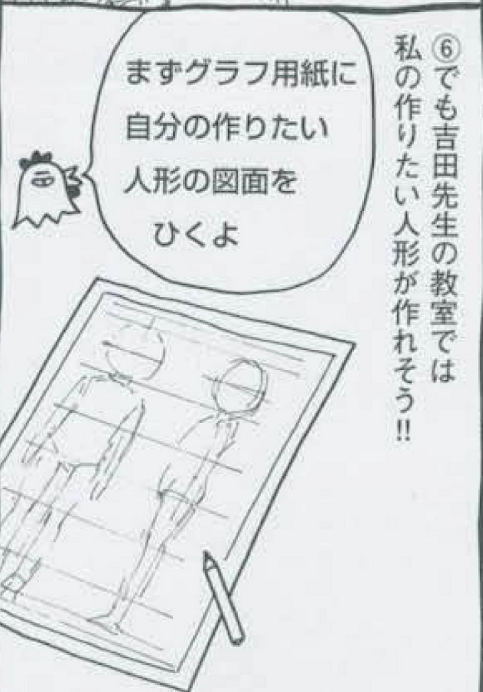 ⑥でも吉田先生の教室では
私の作りたい人形が作れそう!!
まずグラフ用紙に
自分の作りたい
人形の図面を
ひくよ